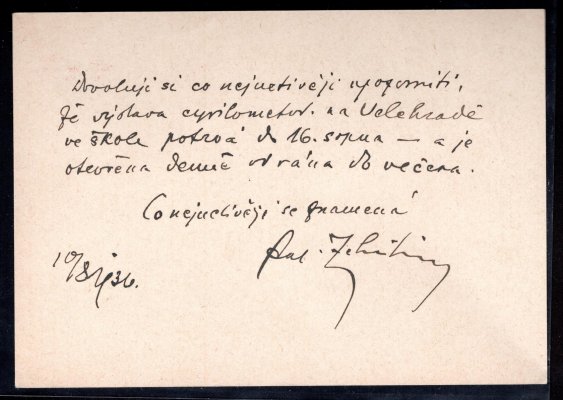 Dovoluji si co nejuctivěji upozorniti,
že výstava cyrilometod. na Velehradě
ve škole potrvá do 16. srpna – a je
otevřena denně od rána do večera.
Co nejuctivěji se znamená
Ant.
10/8 1936.